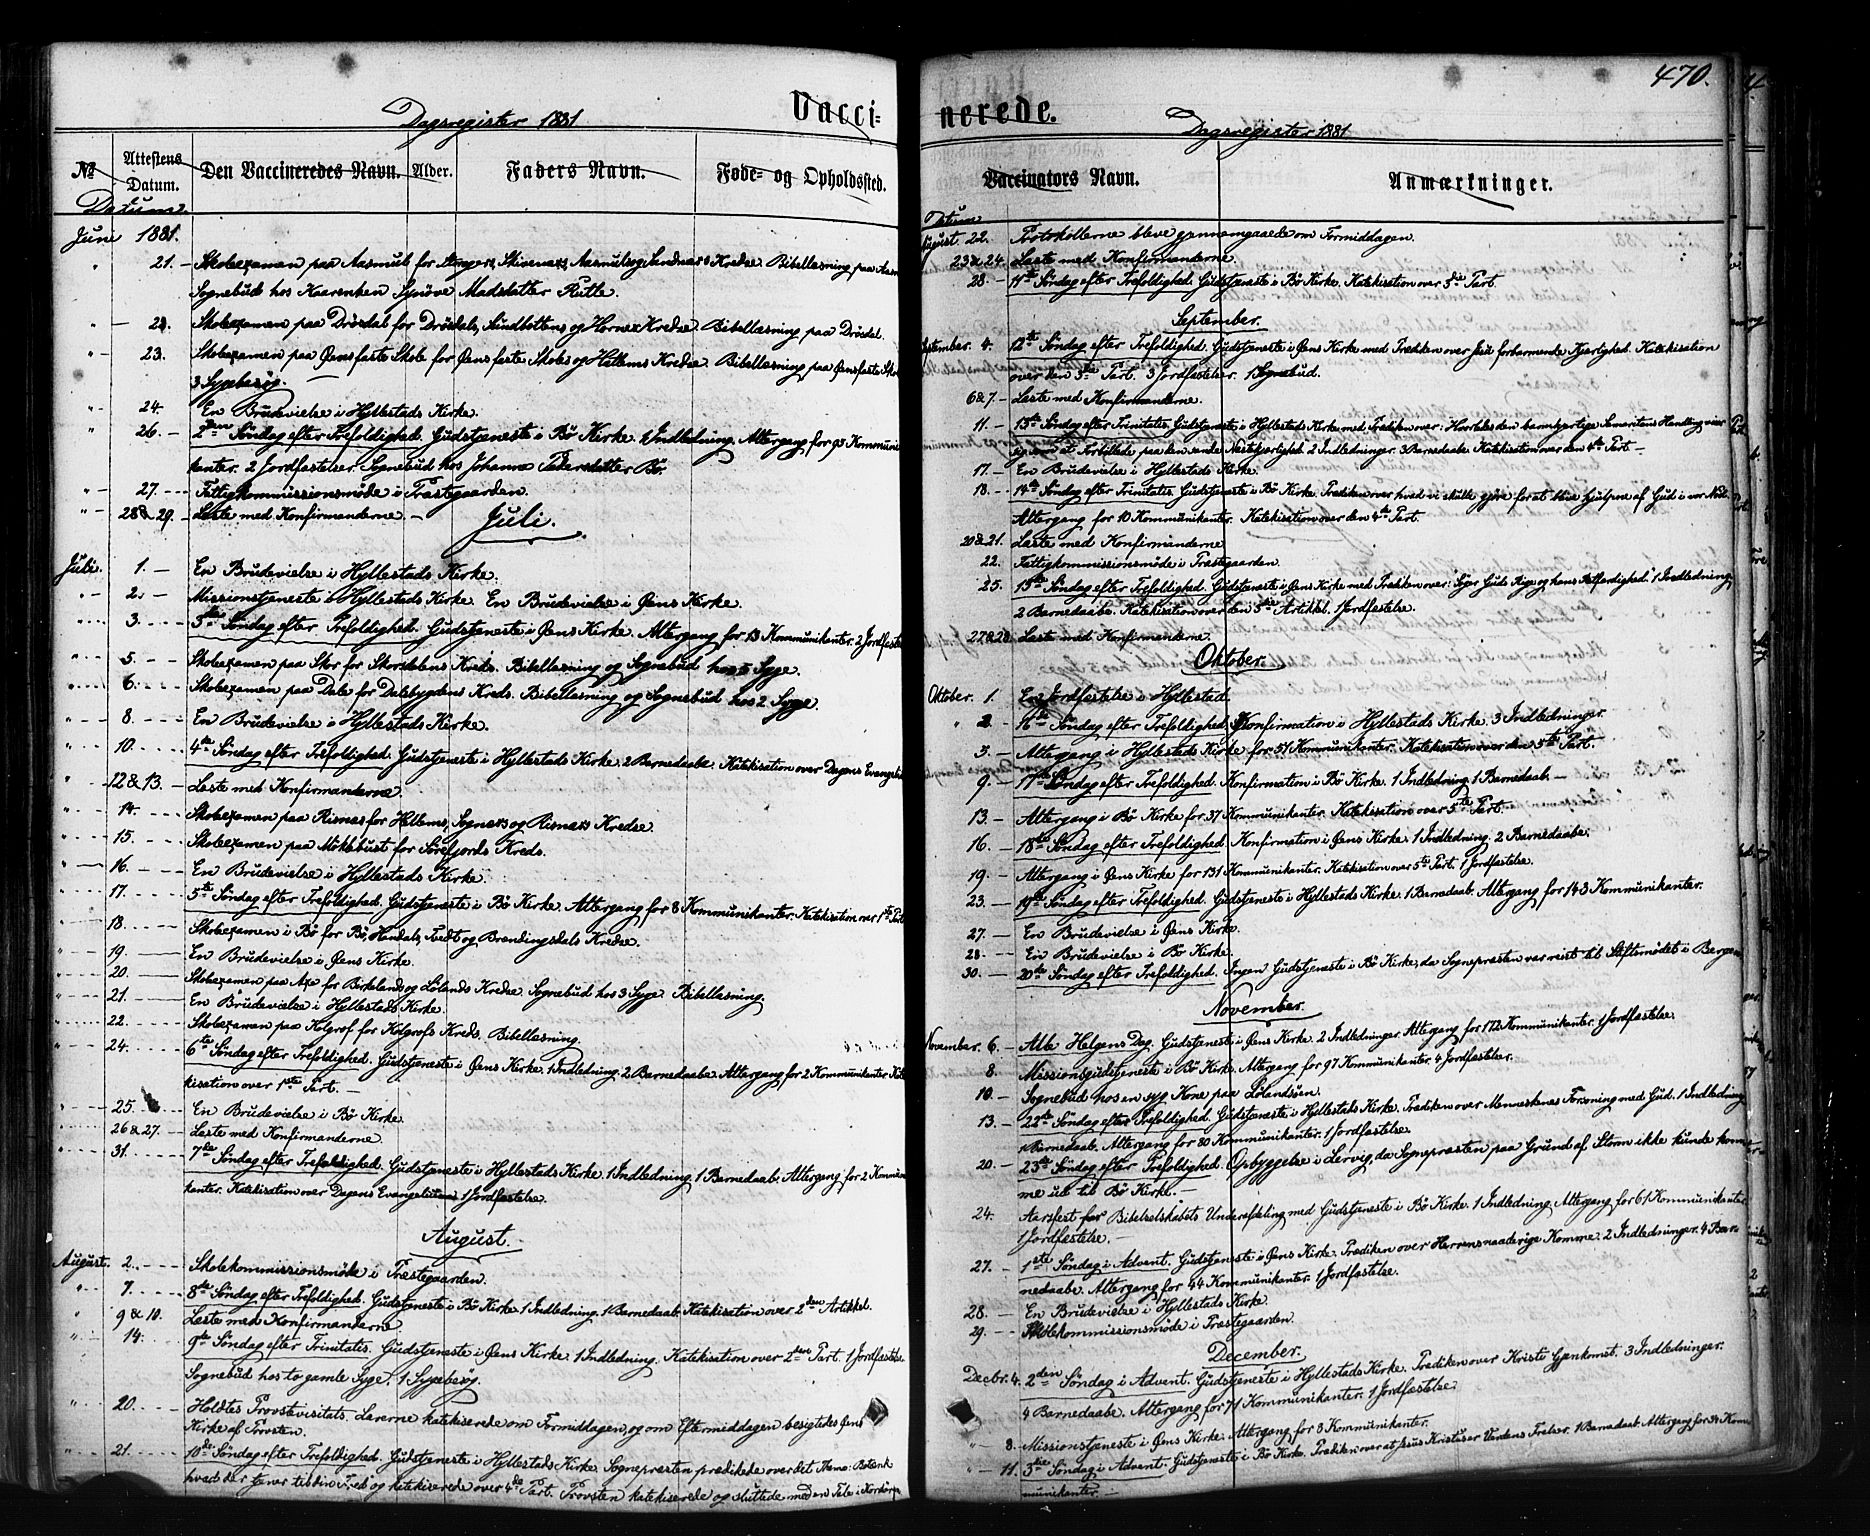 Vacci-
Dagsregister 1881
№
Attestens Datum.
Den Vaccineredes Navn.
Alder.
Faders Navn.
Føde- og Opholdssted.
Datum.
Juni 1881.
21. — Skoleexamen paa Aasmul for Skivenes, Aasmul og Sandnæs Kredse. Bibellæsning paa
Sognebud hos Kaarenken Synøve Madsdatter Rutle.
Skoleexamen paa Drøsdal for Drøsdals, Sundbottens og Hornes Kredse. Bibellæsning paa Drösdal.
23. Skoleexamen paa Øens faste Skole for Øens faste Skole og Hatlems Kredse. Bibellæsning paa Øens faste
3 Sygebesøg.
24. En Brudevielse i Hyllestads Kirke.
26. — 2den Søndag efter Trefoldighed. Gudstjeneste i Bö Kirke. 1 Indledning. Altergang for 93 Kommuni-
kanter. 2 Jordfæstelser. Sognebud hos Johanne Pedersdatter Bö.
27. Fattigkommissionsmøde i Præstegaarden.
28 & 29. Læste med Konfirmanderne. —
Juli.
Juli. 1. — En Brudevielse i Hyllestads Kirke.
2. — Missionstjeneste i Hyllestads Kirke. En Brudevielse i Øens Kirke.
3. Søndag efter Trefoldighed. Gudstjeneste i Øens Kirke. Altergang for 13 Kommunikanter. 2 Jordfæstelser
5. — Skoleexamen paa Skor for Skordalens Kreds. Bibellæsning og Sognebud hos Syge.
6. Skoleexamen paa Dale for Dalsbygdens Kreds. Bibellæsning og Sognebud hos 2 Syge.
8. En Brudevielse i Hyllestads Kirke.
10. 4de Søndag efter Trefoldighed. Gudstjeneste i Hyllestads Kirke. 2 Barnedaabe. Katekisation over Dagens Evangeli
12 & 13. — Læste med Konfirmanderne.
14. Skoleexamen paa Risnes for Hellems, Sognes og Risnes Kredse.
15. Skoleexamen paa Mökkelbust for Sörefjords Kreds.
16. — En Brudevielse i Hyllestads Kirke.
17. 5te Søndag efter Trefoldighed. Gudstjeneste i Bö Kirke. Altergang for 8 Kommunikanter. Katekisation over 1ste Part
18. Skoleexamen i Bö for Bö, Tvedt og Brendingsdals Kredse.
19. En Brudevielse i Øens Kirke.
20. Skoleexamen paa for Birkelands og Lölands Kredse. Sognebud hos 3 Syge. Bibellæsning.
21. En Brudevielse i Hyllestads Kirke.
22. Skoleexamen paa Kolgrof for Kolgrofs Kreds. Bibellæsning.
24. 6te Søndag efter Trefoldighed. Gudstjeneste i Øens Kirke. 1 Indledning. 2 Barnedaabe. Altergang for 2 Kommunikanter. Kate-
kisation over 1ste Part. —
25. En Brudevielse i Bö Kirke.
26 & 27. Læste med Konfirmanderne.
31. 7de Søndag efter Trefoldighed. Gudstjeneste i Hyllestads Kirke. 1 Indledning. 1 Barnedaab. Altergang for 2 Kommuni-
kanter. Katekisation over Dagens Evangelium. 1 Jordfæstelse.
August.
August. 2. Skolekommissionsmøde i Præstegaarden.
7. 8de Søndag efter Trefoldighed. Gudstjeneste i Bö Kirke. 1 Indledning. 1 Barnedaab. Katekisation over 2den Artikkel.
9 & 10. Læste med Konfirmanderne
14. 9de Søndag efter Trinitatis. Gudstjeneste i Øens Kirke. 1 Indledning. Katekisation over 2den Part. 1 Jordfæstelse
Sognebud hos to gamle Syge. 1 Sygebesög.
20. Holdtes Provstevisitats. Lærerne katekiserede om Formiddagen, og om Eftermiddagen besigtedes Øens
Kirke af Provsten.
21. 10de Søndag efter Trefoldighed. Gudstjeneste i Hyllestads Kirke. Sognepræsten prædikede over det Thema: Betænk
hvad der tjener til din Fred og katekiserede over 4de Part. Provsten katekiserede og sluttede med en Tale i
470.
nerede.
Dagsregister 1881
Vaccinators Navn.
Anmærkninger.
Datum
August 22. Protokollerne bleve gennemgaaede om Formiddagen.
23 & 24. Læste med Konfirmanderne
28. — 11te Søndag efter Trefoldighed. Gudstjeneste i Bö Kirke. Katekisation over 3die Part.
September.
September. 4. 12te Søndag efter Trefoldighed. Gudstjeneste i Øens Kirke med Prædiken over Jesu forbarmende Kjærlighed. Katekisation
over den 3die Part. 3 Jordfæstelser. 1 Sognebud.
6 & 7. — Læste med Konfirmanderne.
11. — 13de Søndag efter Trinitatis. Gudstjeneste i Hyllestads Kirke med Prædiken over: Hvorledes den barmhjertige Samaritans Handling viser
sig som et Forbillede paa den sande Næstekjærlighed. 2 Indledninger. 3 Barnedaabe. Katekisation over den 4de Part. —
17. — En Brudevielse i Hyllestads Kirke.
18. — 14de Søndag efter Trinitatis. Gudstjeneste i Bö Kirke. Prædiken over hvad vi skulle gjøre for at blive hjulpen af Gud i vor Nöd.
Altergang for 10 Kommunikanter. Katekisation over den 4de Part.
20 & 21. Læste med Konfirmanderne
22. Fattigkommissionsmøde i Præstegaarden.
25. 15de Søndag efter Trefoldighed. Gudstjeneste i Øens Kirke med Prædiken over: Søger Guds Rige og hans Retfærdighed." 1 Indledning
2 Barnedaabe. Katekisation over den Artikkel. 1 Jordfæstelse.
27 & 28 Læste med Konfirmanderne.
Oktober.
Oktober. 1. En Jordfæstelse i Hyllestad.
2 — 16de Søndag efter Trefoldighed. Konfirmation i Hyllestads Kirke. 3 Indledninger.
3. — Altergang i Hyllestads Kirke for 51 Kommunikanter. Katekisation over den 5te Part.
9. — 17de Søndag efter Trefoldighed. Konfirmation i Bö Kirke. 1 Indledning. 1 Barnedaab. —
13. — Altergang i Bö Kirke for 37 Kommunikanter. Katekisation over 5te Part.
16. — 18de Søndag efter Trefoldighed. Konfirmation i Øens Kirke. 1 Indledning. 2 Barnedaabe.
19. — Altergang i Øens Kirke for 131 Kommunikanter. Katekisation over 5te Part. 1 Jordfæstelse.
23. — 19de Søndag efter Trefoldighed. Gudstjeneste i Hyllestads Kirke. 1 Barnedaab. Altergang for 143 Kommunikanter.
27. — En Brudevielse i Øens Kirke.
28. — En Brudevielse i Bö Kirke.
30. — 20de Søndag efter Trefoldighed. Ingen Gudstjeneste i Bö Kirke, da Sognepræsten var reist til Stiftsmødet i Bergen
November.
November. 6. — Alle Helgens Dag. Gudstjeneste i Øens Kirke. 2 Indledninger. Altergang for 172 Kommunikanter. 1 Jordfæstelse.
8. Missionsgudstjeneste i Bö Kirke. Altergang for 97 Kommunikanter. 4 Jordfæstelser.
10. — Sognebud hos en syg Kone paa Lölandsöen.
13. — 22de Søndag efter Trefoldighed. Gudstjeneste i Hyllestads Kirke. Prædiken over Menneskenes Forsoning med Gud. 1 Indledning
1 Barnedaab. Altergang for 80 Kommunikanter. 1 Jordfæstelse.
20. — 23de Søndag efter Trefoldighed. Opbyggelse i Lervig, da Sognepræsten paa Grund af Storm ikke kunde kom-
me ud til Bö Kirke.
24. Aarsfest for Bibelselskabets Underafdeling med Gudstjeneste i Bö Kirke. 1 Indledning. Altergang for 61 Kommunikanter
1 Jordfæstelse. —
27. — 1ste Søndag i Advent. Gudstjeneste i Øens Kirke. Prædiken over Herrens naaderige Komme. 2 Indledninger. 4 Bar-
nedaabe. Altergang for 44 Kommunikanter. 1 Jordfæstelse.
28. — En Brudevielse i Hyllestads Kirke.
29. — Skolekommissionsmøde i Præstegaarden.
December.
Decbr. 4. 2den Søndag i Advent. Gudstjeneste i Hyllestads Kirke. Prædiken over Kristi Gjenkomst. 3 Indledninger.
4 Barnedaabe. Altergang for 71 Kommunikanter. 1 Jordfæstelse.
8. — Missionstjeneste i Øens Kirke. Altergang for 8 Kommunikanter.
— 11. 3die Søndag i Advent. Gudstjeneste i Bö Kirke. Prædiken over at Jesus Kristus er Verdens Frelser. 1 Barnedaab. Altergang for 34 Kom-
munikanter. —